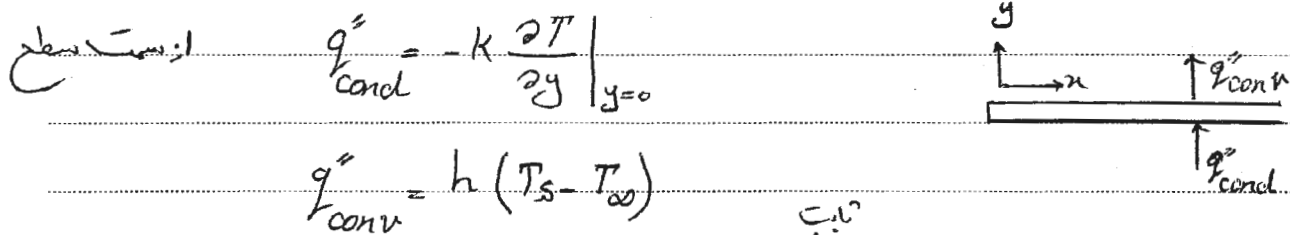 از سمت سطح q″cond = -k ∂T/∂y |y=0
y
x
q″conv
q″cond
q″conv = h (Ts - T∞)
ثابت